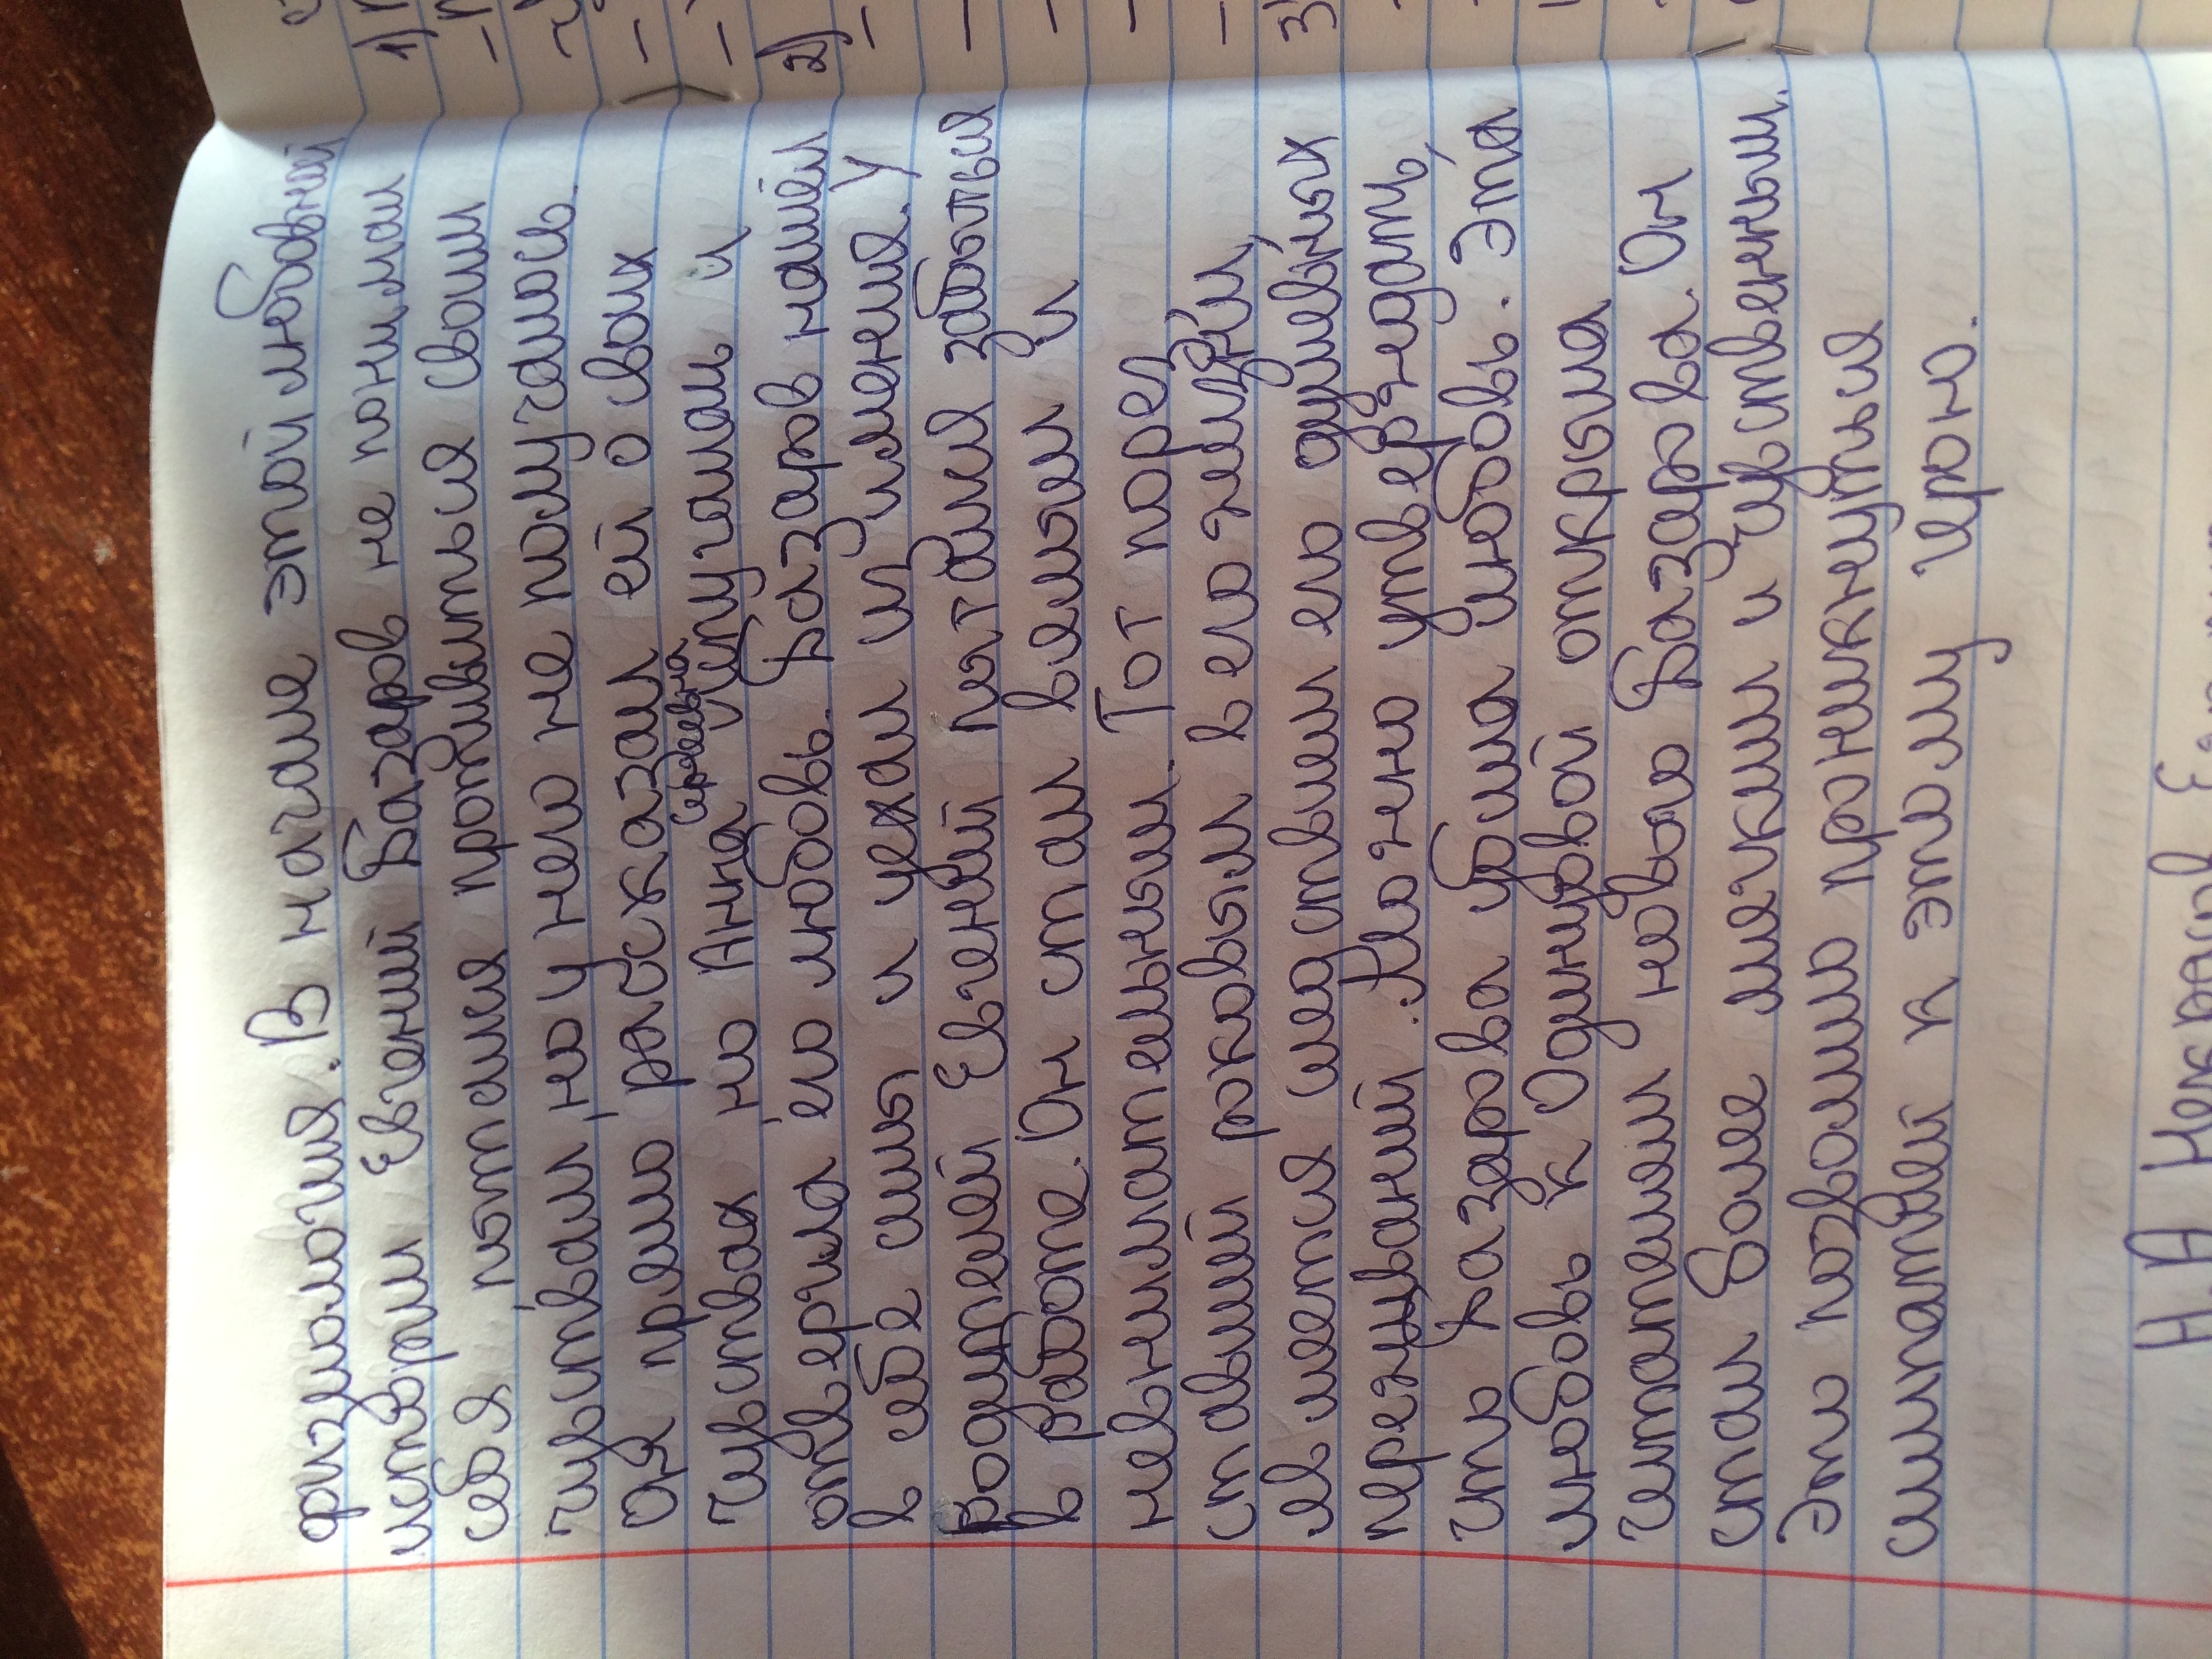 физиология. В начале этой любовной
истории Евгений Базаров не понимал
себя, пытался противиться своим
чувствам, но у него не получалось.
Он прямо рассказал ей о своих
чувствах, но Анна Сергеевна испугалась и
отвергла его любовь. Базаров нашёл
в себе силы и уехал из имения. У
родителей Евгений пытался забыться
в работе. Он стал вялым и
невнимательным. Тот порез,
ставший роковым в его жизни,
является следствием его душевных
переживаний. Можно утверждать,
что Базарова убила любовь. Эта
любовь к Одинцовой открыла
читателям нового Базарова. Он
стал более мягким и чувственным.
Это позволило проникнуться
симпатией к этому герою.
Н А Некрасов
1)
2)
3)